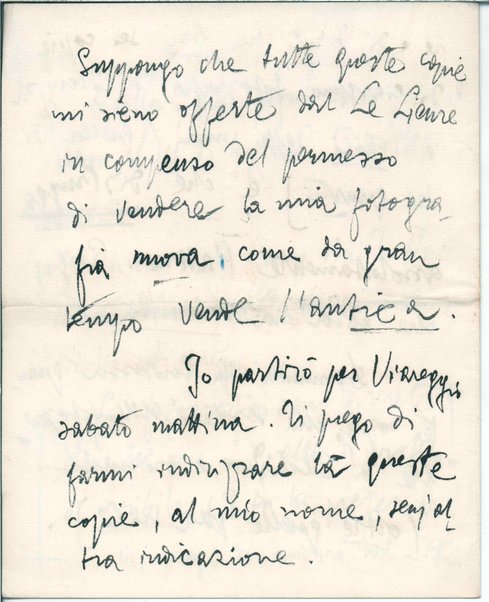 Suppongo che tutte queste copie
mi sieno offerte dal Le Lieure
in compenso del permesso
di vendere la mia fotogra-
fia nuova, come da gran
tempo vende l'antica.
Io partirò per Viareggio
sabato mattina. Ti prego di
farmi indirizzare là queste
copie, al mio nome, senz'al-
tra indicazione.